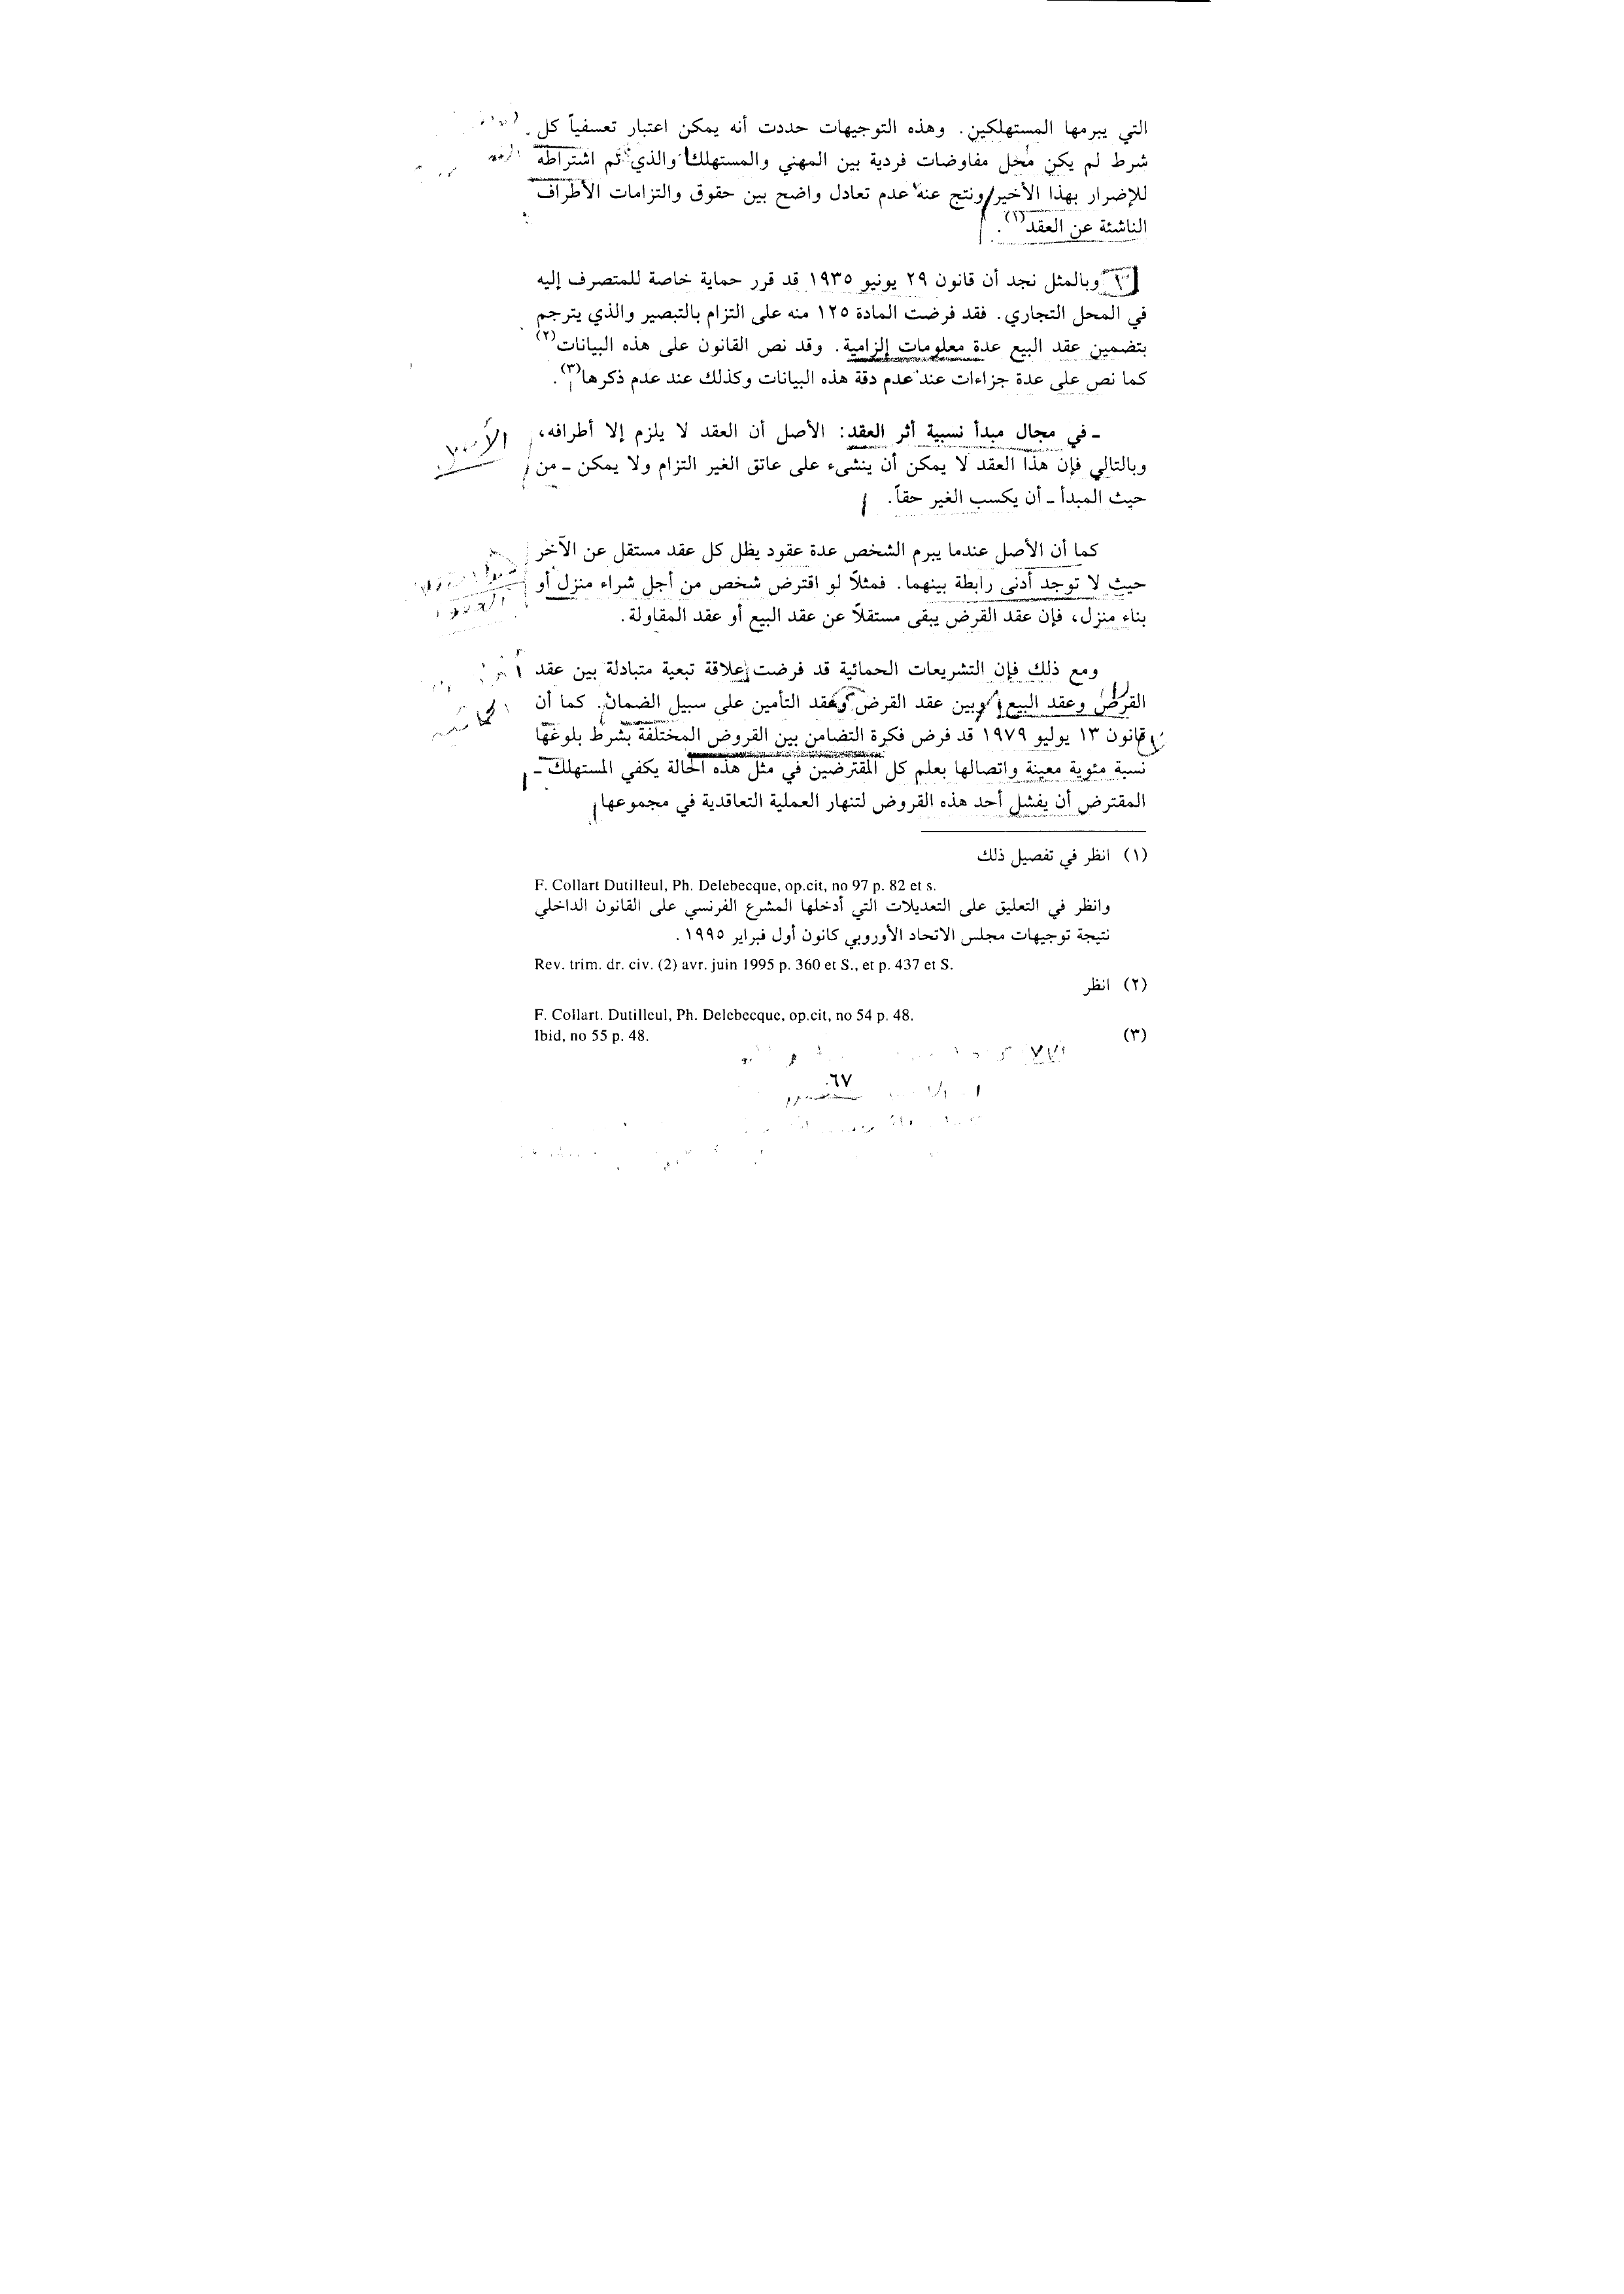 التي يبرمها المستهلكين. وهذه التوجيهات حددت أنه يمكن اعتبار تعسفياً كل
شرط لم يكن محل مفاوضات فردية بين المهني والمستهلك والذي تم اشتراطه
للإضرار بهذا الأخير ونتج عنه عدم تعادل واضح بين حقوق والتزامات الأطراف
الناشئة عن العقد(١).
وبالمثل نجد أن قانون ٢٩ يونيو ١٩٣٥ قد قرر حماية خاصة للمتصرف إليه
في المحل التجاري. فقد فرضت المادة ١٢٥ منه على التزام بالتبصير والذي يترجم
بتضمين عقد البيع عدة معلومات إلزامية. وقد نص القانون على هذه البيانات(٢)
كما نص على عدة جزاءات عند عدم دقة هذه البيانات وكذلك عند عدم ذكرها(٣).
ـ في مجال مبدأ نسبية أثر العقد: الأصل أن العقد لا يلزم إلا أطرافه،
وبالتالي فإن هذا العقد لا يمكن أن ينشىء على عاتق الغير التزام ولا يمكن ـ من
حيث المبدأ ـ أن يكسب الغير حقاً.
كما أن الأصل عندما يبرم الشخص عدة عقود يظل كل عقد مستقل عن الآخر
حيث لا توجد أدنى رابطة بينهما. فمثلاً لو اقترض شخص من أجل شراء منزل أو
بناء منزل، فإن عقد القرض يبقى مستقلاً عن عقد البيع أو عقد المقاولة.
ومع ذلك فإن التشريعات الحمائية قد فرضت علاقة تبعية متبادلة بين عقد
القرض وعقد البيع وبين عقد القرض وعقد التأمين على سبيل الضمان. كما أن
قانون ١٣ يوليو ١٩٧٩ قد فرض فكرة التضامن بين القروض المختلفة بشرط بلوغها
نسبة مئوية معينة واتصالها بعلم كل المقترضين في مثل هذه الحالة يكفي المستهلك ـ
المقترض أن يفشل أحد هذه القروض لتنهار العملية التعاقدية في مجموعها
(١) انظر في تفصيل ذلك
F. Collart Dutilleul, Ph. Delebecque, op.cit, no 97 p. 82 et s.
وانظر في التعليق على التعديلات التي أدخلها المشرع الفرنسي على القانون الداخلي
نتيجة توجيهات مجلس الاتحاد الأوروبي كانون أول فبراير ١٩٩٥.
Rev. trim. dr. civ. (2) avr. juin 1995 p. 360 et S., et p. 437 et S.
(٢) انظر
F. Collart. Dutilleul, Ph. Delebecque, op.cit, no 54 p. 48.
(٣) Ibid, no 55 p. 48.
٦٧